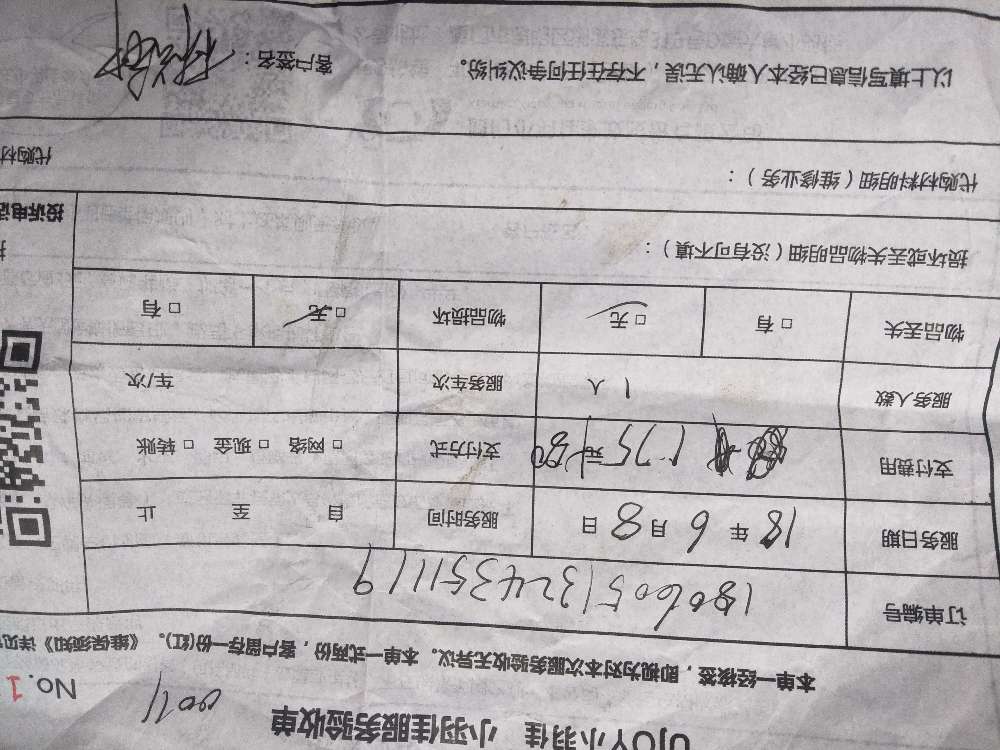 UJOY小羽佳 小羽佳服务验收单
No.1
本单一经核签，即视为对本次服务验收无异议。本单一式两份，客户留存一份(红)。《维保须知》详见
订单编号 180605132435111119
服务日期 18年6月8日 服务时间 自 至 止
支付费用 元 支付方式 □网络 □现金 □转账
服务人数 1人 服务车次 车/次
物品丢失 □有 □无 物品损坏 □无 □有
损坏或丢失物品明细（没有可不填）：
投诉电话
代购材料明细（维修业务）：
代购材
以上填写信息已经本人确认无误，不存在任何争议纠纷。 客户签名：